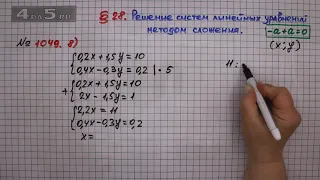 4на5.ru
§ 28. Решение систем линейных уравнений
методом сложения.
-a+a=0
(x; y)
№ 1049. 8)
0,2x + 1,5y = 10
0,4x - 0,3y = 0,2 | · 5
+ 0,2x + 1,5y = 10
2x - 1,5y = 1
2,2x = 11
0,4x - 0,3y = 0,2
x =
11 :